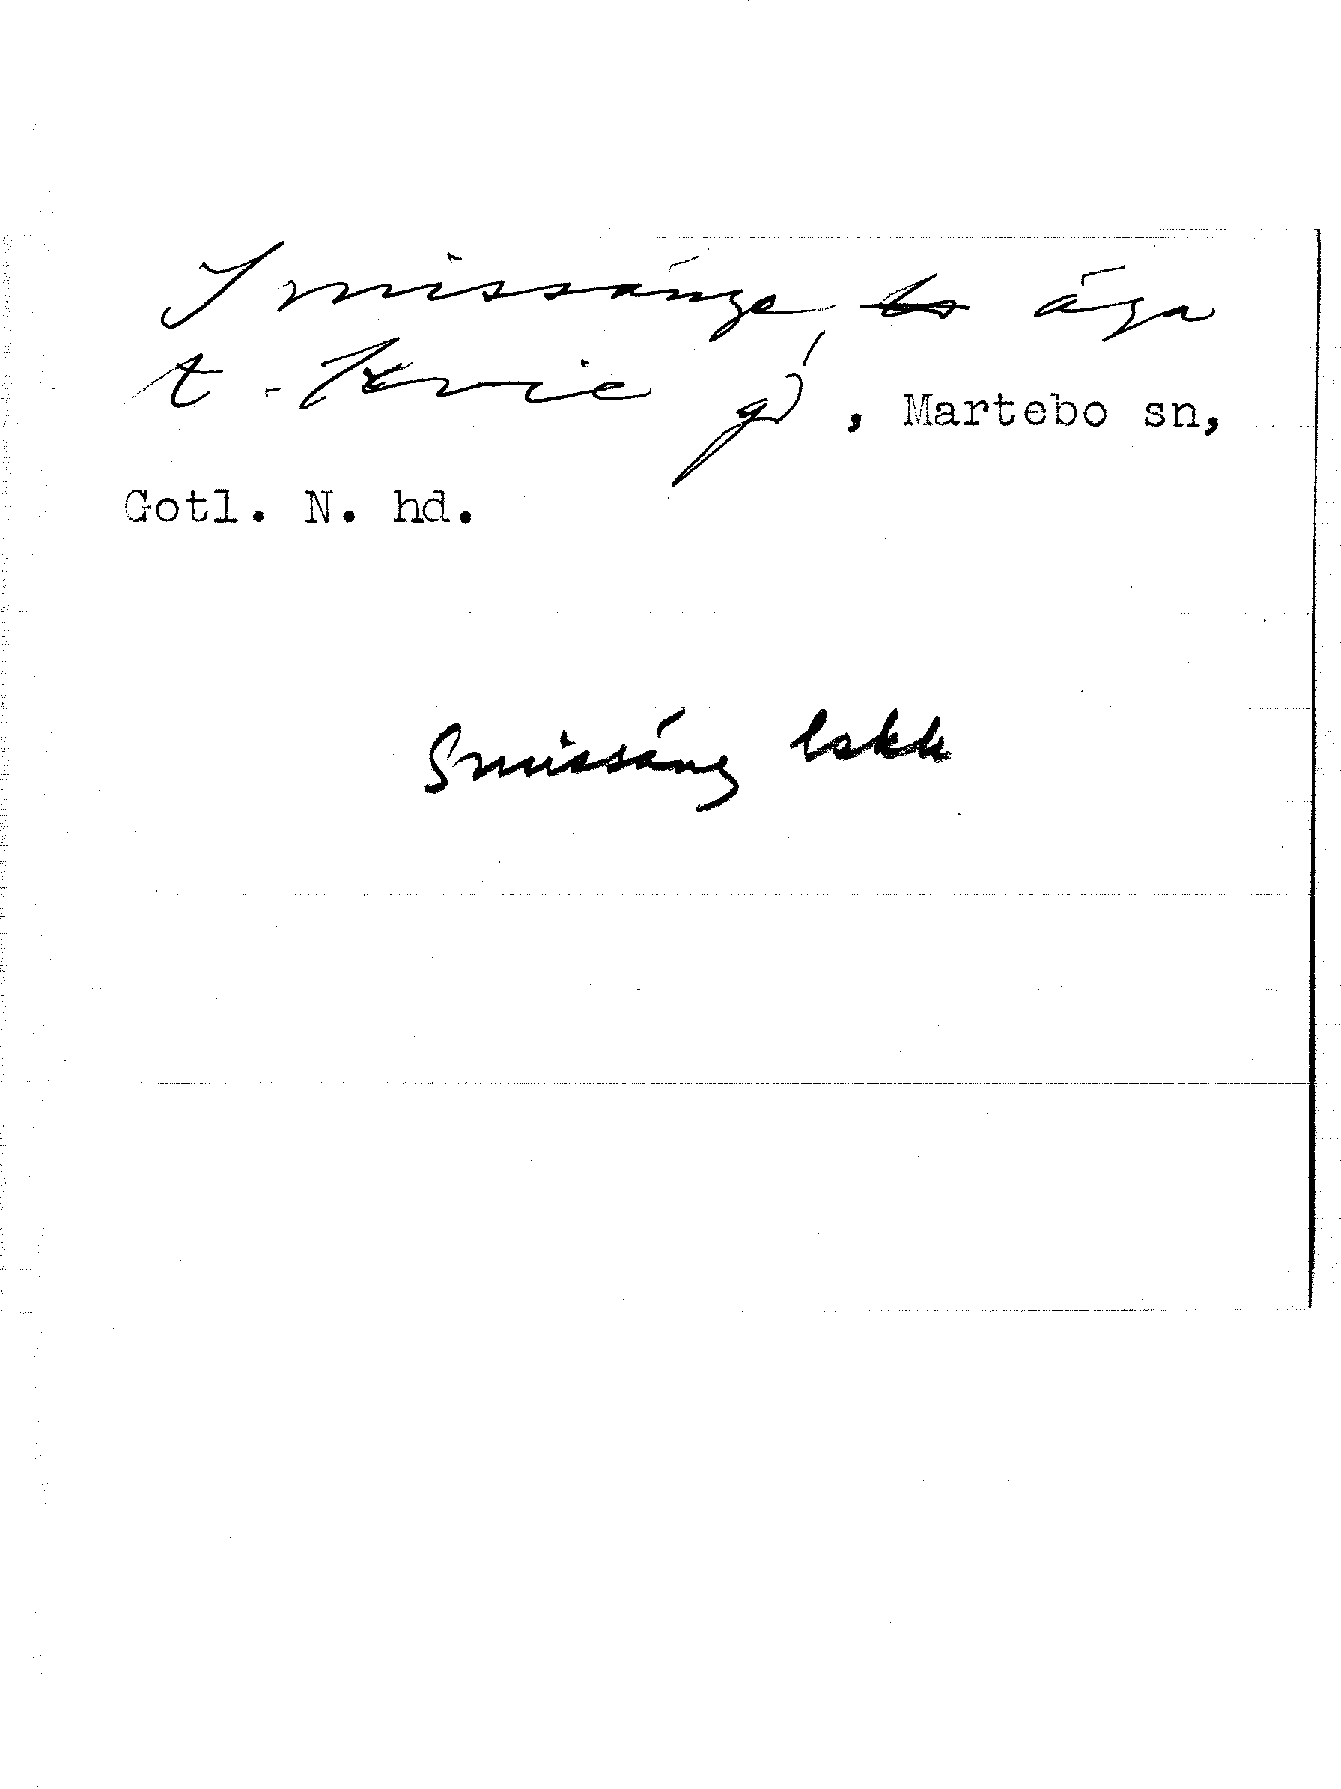 Smissänge äga
t. Kvie gd, Martebo sn,
Gotl. N. hd.
Smissäng lskk